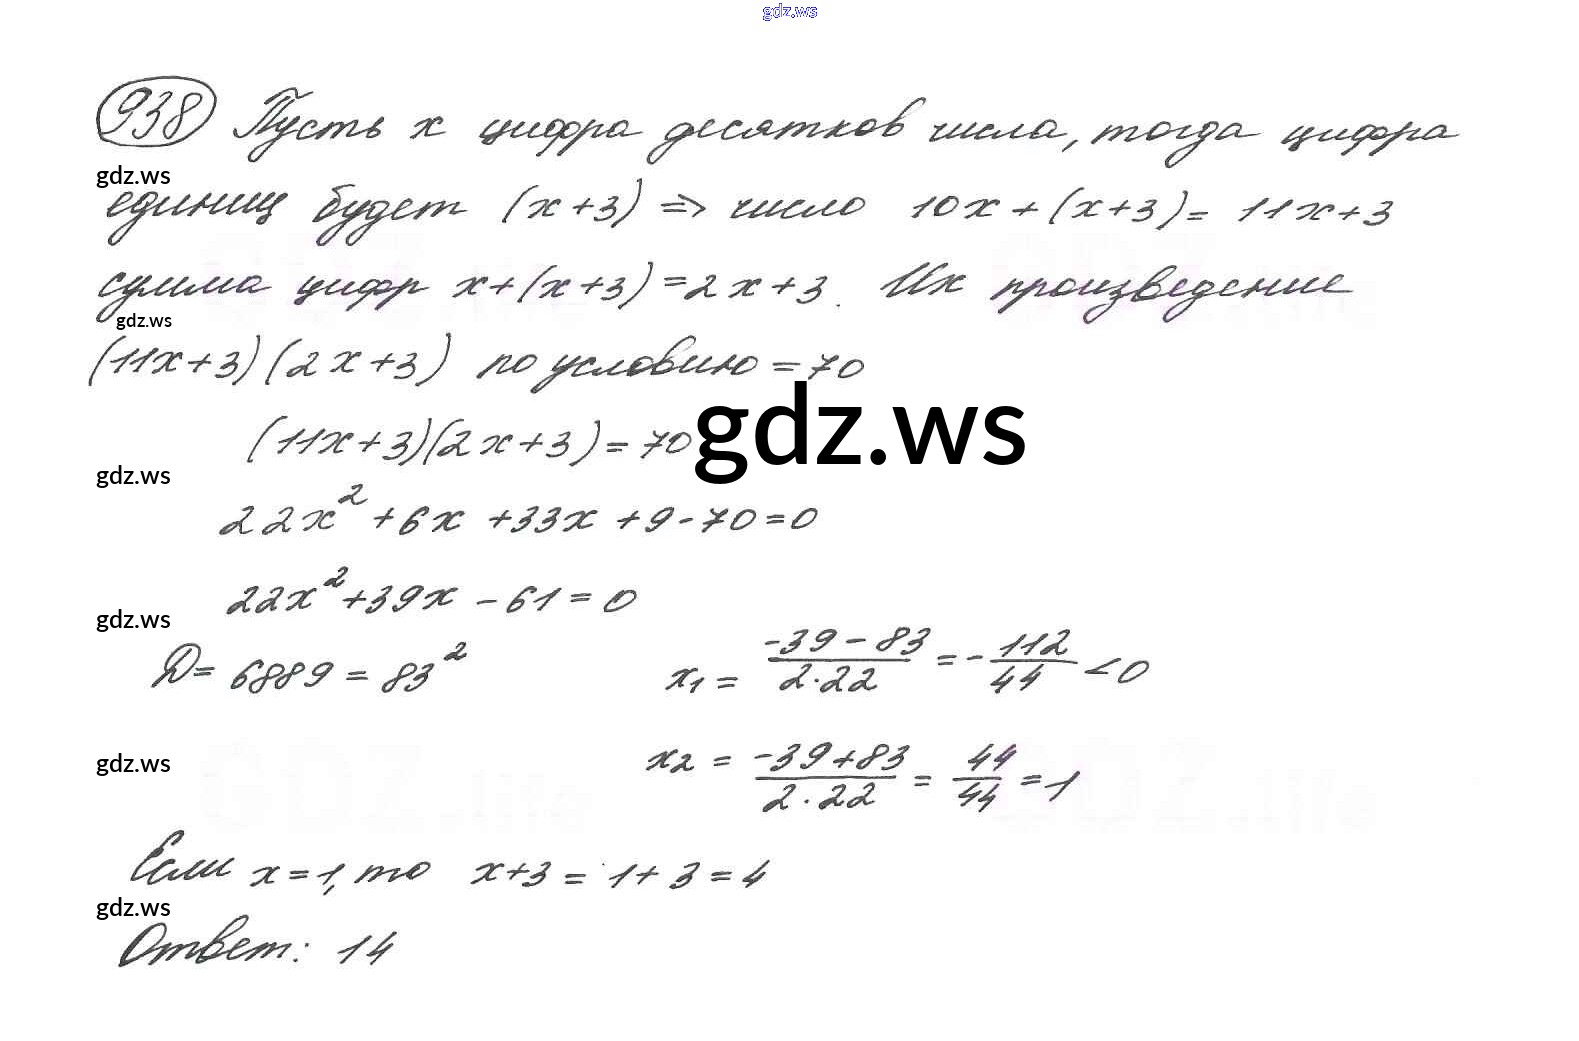 gdz.ws
938 Пусть x цифра десятков числа, тогда цифра
gdz.ws
единиц будет (x+3) => число 10x+(x+3)= 11x+3
сумма цифр x+(x+3)=2x+3. Их произведение
gdz.ws
(11x+3)(2x+3) по условию =70
(11x+3)(2x+3)=70
gdz.ws
gdz.ws
22x²+6x+33x+9-70=0
22x²+39x-61=0
gdz.ws
D= 6889 = 83² x₁ = (-39-83)/(2·22) = -112/44 <0
x₂ = (-39+83)/(2·22) = 44/44 =1
gdz.ws
Если x=1, то x+3 = 1+3=4
gdz.ws
Ответ: 14
GDZ.life
GDZ.life
GDZ.life
GDZ.life